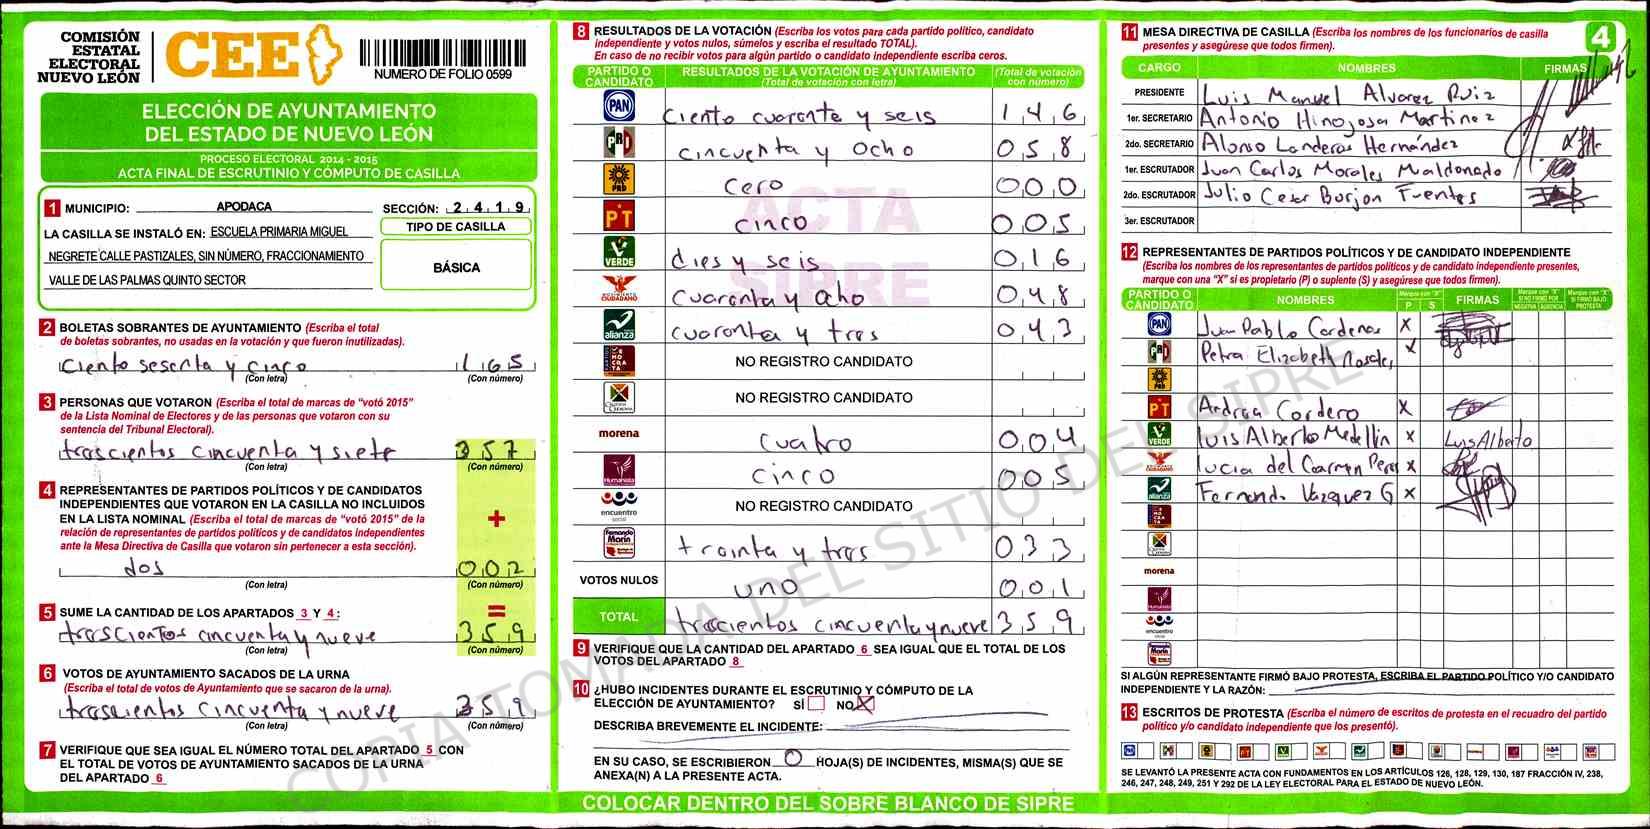 COMISIÓN
ESTATAL
ELECTORAL
NUEVO LEÓN
CEE
NUMERO DE FOLIO 0599
ELECCIÓN DE AYUNTAMIENTO
DEL ESTADO DE NUEVO LEÓN
PROCESO ELECTORAL 2014 - 2015
ACTA FINAL DE ESCRUTINIO Y CÓMPUTO DE CASILLA
1 MUNICIPIO: APODACA SECCIÓN: 2 4 1 9
LA CASILLA SE INSTALÓ EN: ESCUELA PRIMARIA MIGUEL
NEGRETE CALLE PASTIZALES, SIN NÚMERO, FRACCIONAMIENTO
VALLE DE LAS PALMAS QUINTO SECTOR
TIPO DE CASILLA
BÁSICA
2 BOLETAS SOBRANTES DE AYUNTAMIENTO (Escriba el total
de boletas sobrantes, no usadas en la votación y que fueron inutilizadas).
ciento sesenta y cinco 1 6 5
(Con letra) (Con número)
3 PERSONAS QUE VOTARON (Escriba el total de marcas de "votó 2015"
de la Lista Nominal de Electores y de las personas que votaron con su
sentencia del Tribunal Electoral).
trescientos cincuenta y siete 3 5 7
(Con letra) (Con número)
4 REPRESENTANTES DE PARTIDOS POLÍTICOS Y DE CANDIDATOS
INDEPENDIENTES QUE VOTARON EN LA CASILLA NO INCLUIDOS
EN LA LISTA NOMINAL (Escriba el total de marcas de "votó 2015" de la
relación de representantes de partidos políticos y de candidatos independientes
ante la Mesa Directiva de Casilla que votaron sin pertenecer a esta sección).
+
dos 0 0 2
(Con letra) (Con número)
5 SUME LA CANTIDAD DE LOS APARTADOS 3 Y 4: =
trescientos cincuenta y nueve 3 5 9
(Con letra) (Con número)
6 VOTOS DE AYUNTAMIENTO SACADOS DE LA URNA
(Escriba el total de votos de Ayuntamiento que se sacaron de la urna).
trescientos cincuenta y nueve 3 5 9
(Con letra) (Con número)
7 VERIFIQUE QUE SEA IGUAL EL NÚMERO TOTAL DEL APARTADO 5 CON
EL TOTAL DE VOTOS DE AYUNTAMIENTO SACADOS DE LA URNA
DEL APARTADO 6
8 RESULTADOS DE LA VOTACIÓN (Escriba los votos para cada partido político, candidato
independiente y votos nulos, súmelos y escriba el resultado TOTAL).
En caso de no recibir votos para algún partido o candidato independiente escriba ceros.
PARTIDO O CANDIDATO RESULTADOS DE LA VOTACIÓN DE AYUNTAMIENTO (Total de votación con letra) (Total de votación con número)
PAN ciento cuarenta y seis 1 4 6
PRD cincuenta y ocho 0 5 8
PRD cero 0 0 0
PT cinco 0 0 5
VERDE dies y seis 0 1 6
MOVIMIENTO CIUDADANO cuarenta y ocho 0 4 8
alianza cuarenta y tres 0 4 3
NO REGISTRO CANDIDATO
NO REGISTRO CANDIDATO
morena cuatro 0 0 4
Humanista cinco 0 0 5
encuentro social NO REGISTRO CANDIDATO
Fernando Marín treinta y tres 0 3 3
VOTOS NULOS uno 0 0 1
TOTAL trescientos cincuenta y nueve 3 5 9
ACTA
SIPRE
9 VERIFIQUE QUE LA CANTIDAD DEL APARTADO 6 SEA IGUAL QUE EL TOTAL DE LOS
VOTOS DEL APARTADO 8
10 ¿HUBO INCIDENTES DURANTE EL ESCRUTINIO Y CÓMPUTO DE LA
ELECCIÓN DE AYUNTAMIENTO? SÍ NO X
DESCRIBA BREVEMENTE EL INCIDENTE:
EN SU CASO, SE ESCRIBIERON 0 HOJA(S) DE INCIDENTES, MISMA(S) QUE SE
ANEXA(N) A LA PRESENTE ACTA.
COLOCAR DENTRO DEL SOBRE BLANCO DE SIPRE
4
11 MESA DIRECTIVA DE CASILLA (Escriba los nombres de los funcionarios de casilla
presentes y asegúrese que todos firmen).
CARGO NOMBRES FIRMAS
PRESIDENTE Luis Manuel Alvarez Ruiz
1er. SECRETARIO Antonio Hinojosa Martinez
2do. SECRETARIO Alonso Landeros Hernández
1er. ESCRUTADOR Juan Carlos Morales Maldonado
2do. ESCRUTADOR Julio Cesar Burjon Fuentes
3er. ESCRUTADOR
12 REPRESENTANTES DE PARTIDOS POLÍTICOS Y DE CANDIDATO INDEPENDIENTE
(Escriba los nombres de los representantes de partidos políticos y de candidato independiente presentes,
marque con una "X" si es propietario (P) o suplente (S) y asegúrese que todos firmen).
PARTIDO O CANDIDATO NOMBRES Marque con "X" P S FIRMAS Marque con "X" SI NO FIRMÓ POR NEGATIVA AUSENCIA Marque con "X" SI FIRMÓ BAJO PROTESTA
PAN Juan Pablo Cardenas X
Petra Elizabeth Rosales X
PRD
PT Andrea Cordero X
VERDE Luis Alberto Medellin X Luis Alberto
Lucia del Carmen Perez X
alianza Fernando Vazquez G X
morena
Humanista
encuentro social
Fernando Marín
SI ALGÚN REPRESENTANTE FIRMÓ BAJO PROTESTA, ESCRIBA EL PARTIDO POLÍTICO Y/O CANDIDATO
INDEPENDIENTE Y LA RAZÓN:
13 ESCRITOS DE PROTESTA (Escriba el número de escritos de protesta en el recuadro del partido
político y/o candidato independiente que los presentó).
SE LEVANTÓ LA PRESENTE ACTA CON FUNDAMENTOS EN LOS ARTÍCULOS 126, 128, 129, 130, 187 FRACCIÓN IV, 238,
246, 247, 248, 249, 251 Y 292 DE LA LEY ELECTORAL PARA EL ESTADO DE NUEVO LEÓN.
COPIA TOMADA DEL SITIO DEL SIPRE